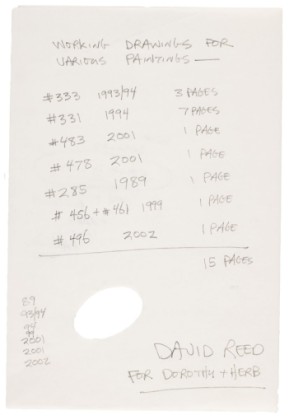 WORKING DRAWINGS FOR
VARIOUS PAINTINGS —
#333 1993/94 3 PAGES
#331 1994 7 PAGES
#483 2001 1 PAGE
#478 2001 1 PAGE
#285 1989 1 PAGE
#456 + #461 1999 1 PAGE
#496 2002 1 PAGE
15 PAGES
89
93/94
94
2001
2001
2002
DAVID REED
FOR DOROTHY + HERB